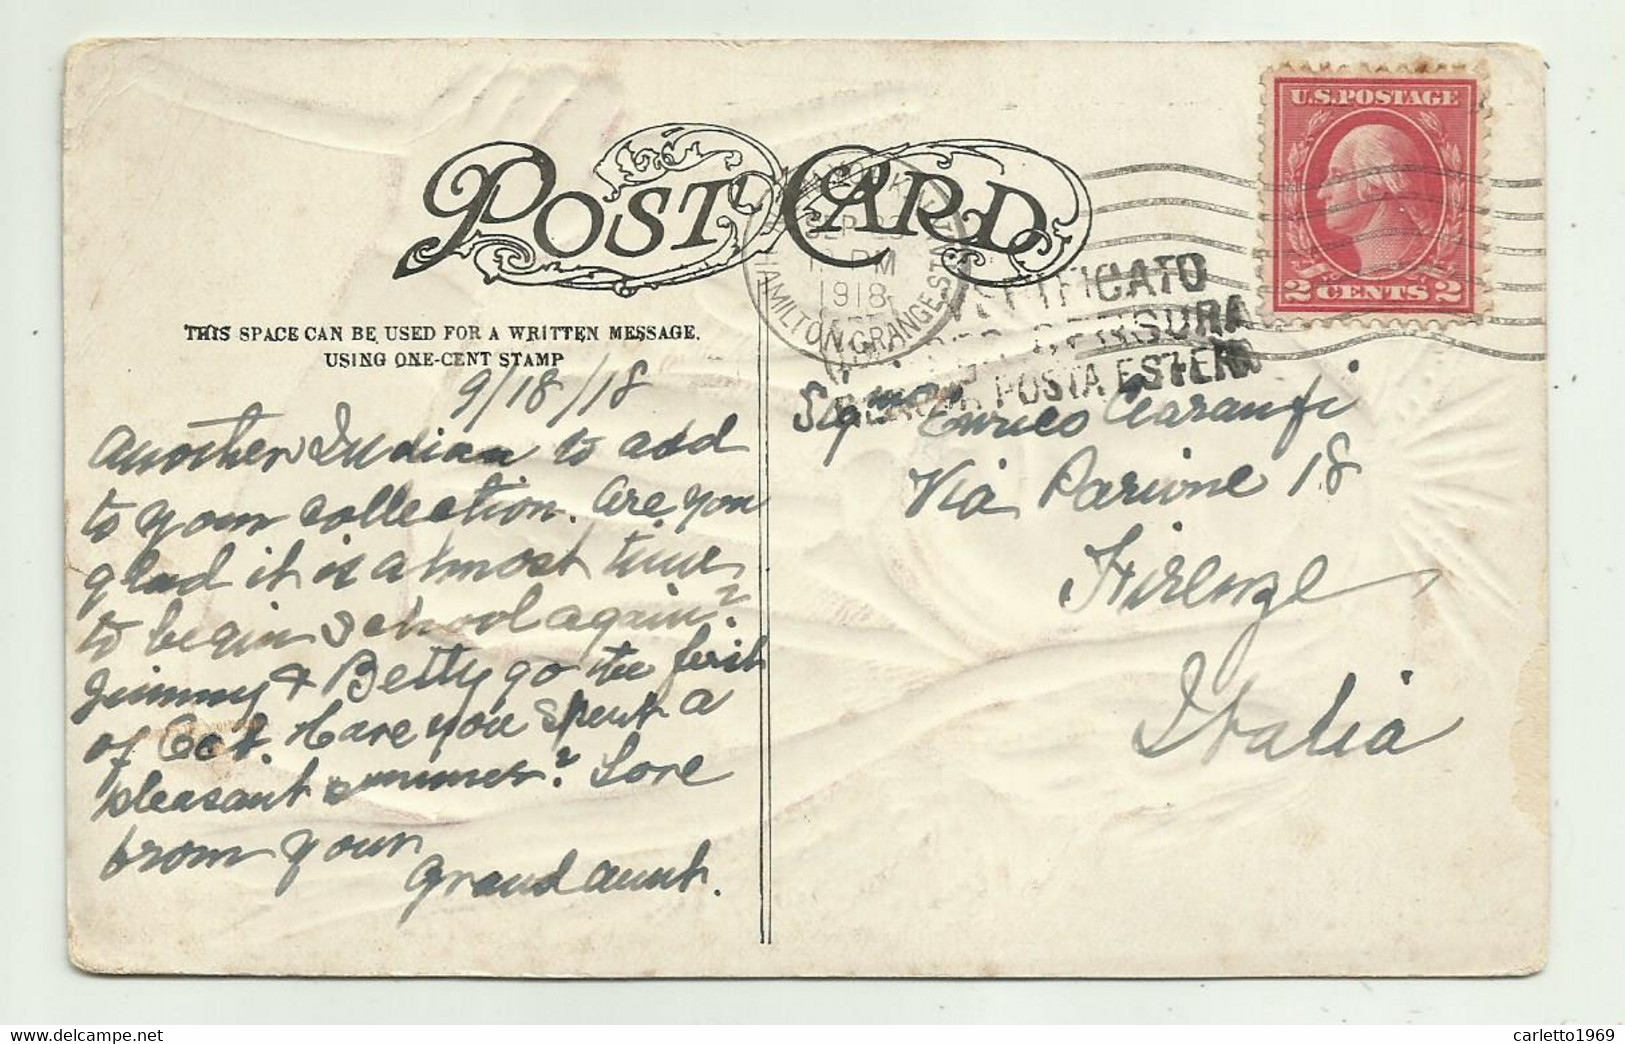 POST CARD
THIS SPACE CAN BE USED FOR A WRITTEN MESSAGE.
USING ONE-CENT STAMP
9/18/18
Another Indian to add
to your collection. Are you
glad it is almost time
to begin school again?
Jimmy & Betty go the first
of Oct. Have you spent a
pleasant summer? Love
from your
Grand aunt.
U.S. POSTAGE
2 CENTS 2
SEP
PM
1918
HAMILTON GRANGE STA.
VERIFICATO
PER CENSURA
POSTA ESTERA
Signor Enrico Ciaranfi
Via Parione 18
Firenze
Italia
delcampe.net
carletto1969